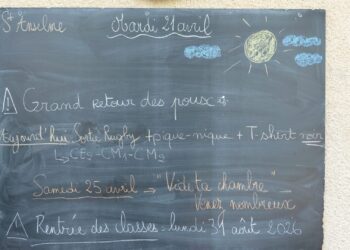 St Anselme
Mardi 21 avril
⚠ Grand retour des poux
Aujourd'hui Sortie Rugby + pique-nique + T-shirt noir
↳ CE2-CM1-CM2
Samedi 25 avril → "Vide ta chambre"
Venez nombreux
⚠ Rentrée des classes : lundi 31 août 2026